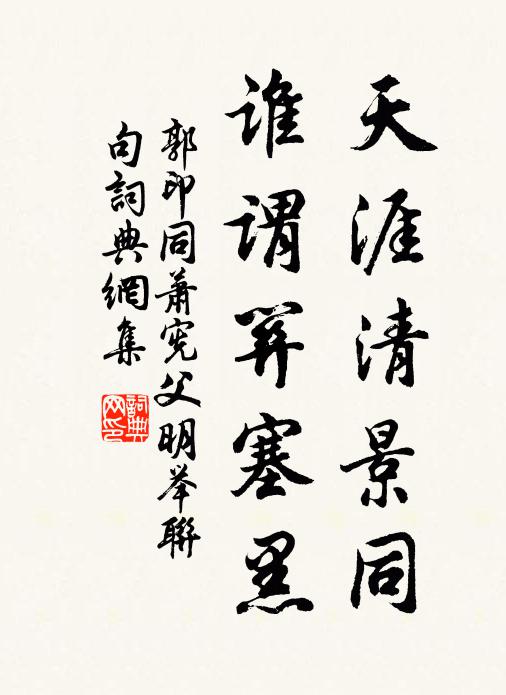 天涯清景同
谁谓笄塞黑
郭印同蕭宪父明举聯
句詞典網集
詞典
网印